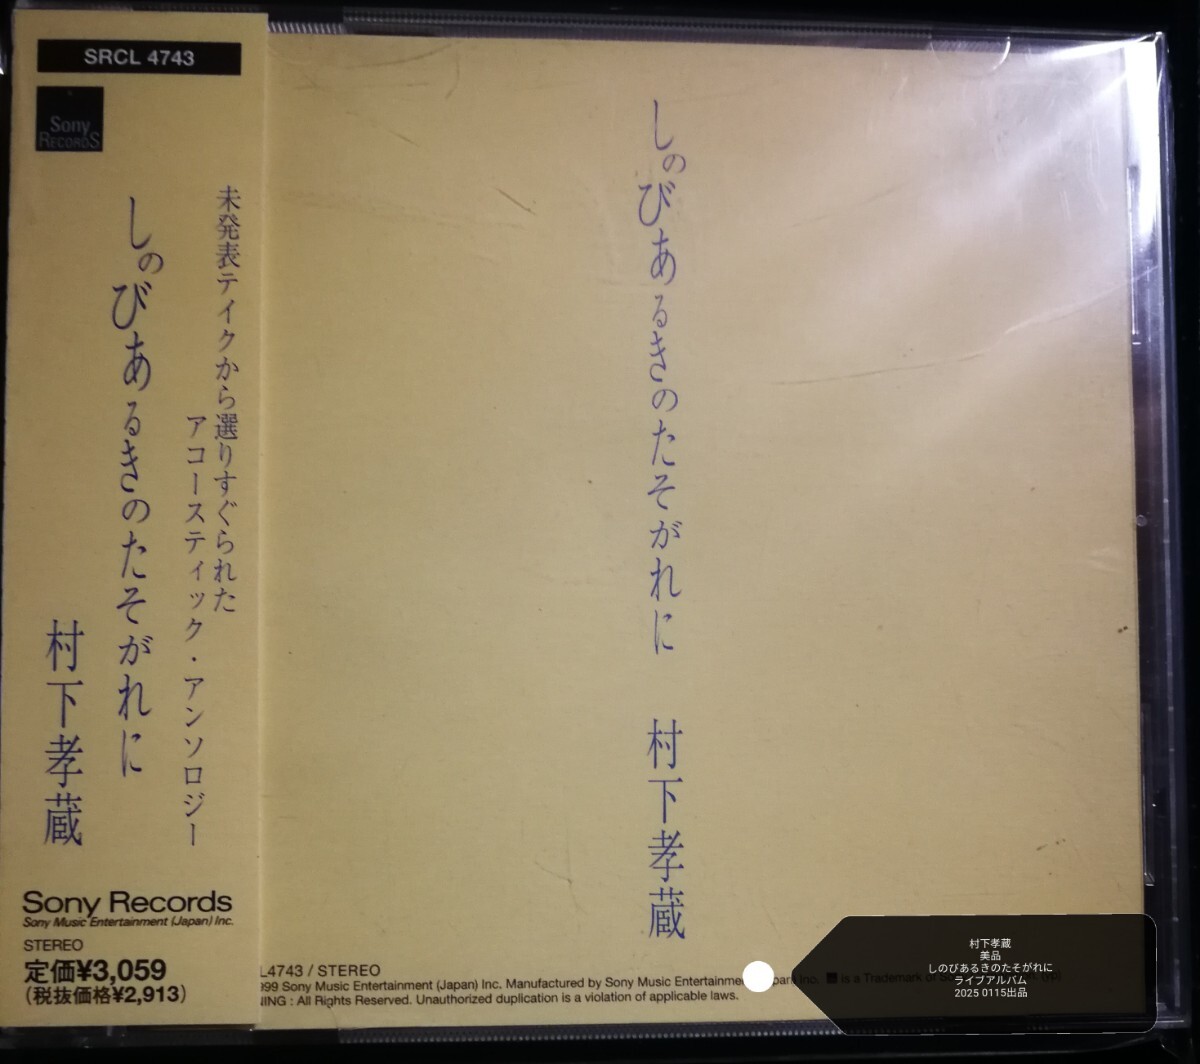 SRCL 4743
Sony
RECORDS
未発表テイクから選りすぐられた
アコースティック・アンソロジー
しのびあるきのたそがれに
村下孝蔵
Sony Records
Sony Music Entertainment (Japan) Inc.
STEREO
定価¥3,059
(税抜価格¥2,913)
しのびあるきのたそがれに 村下孝蔵
L4743 / STEREO
99 Sony Music Entertainment (Japan) Inc. Manufactured by Sony Music Entertainme Japan Inc. is a Trademark of
NING : All Rights Reserved. Unauthorized duplication is a violation of applicable laws.
村下孝蔵
美品
しのびあるきのたそがれに
ライブアルバム
2025 0115出品